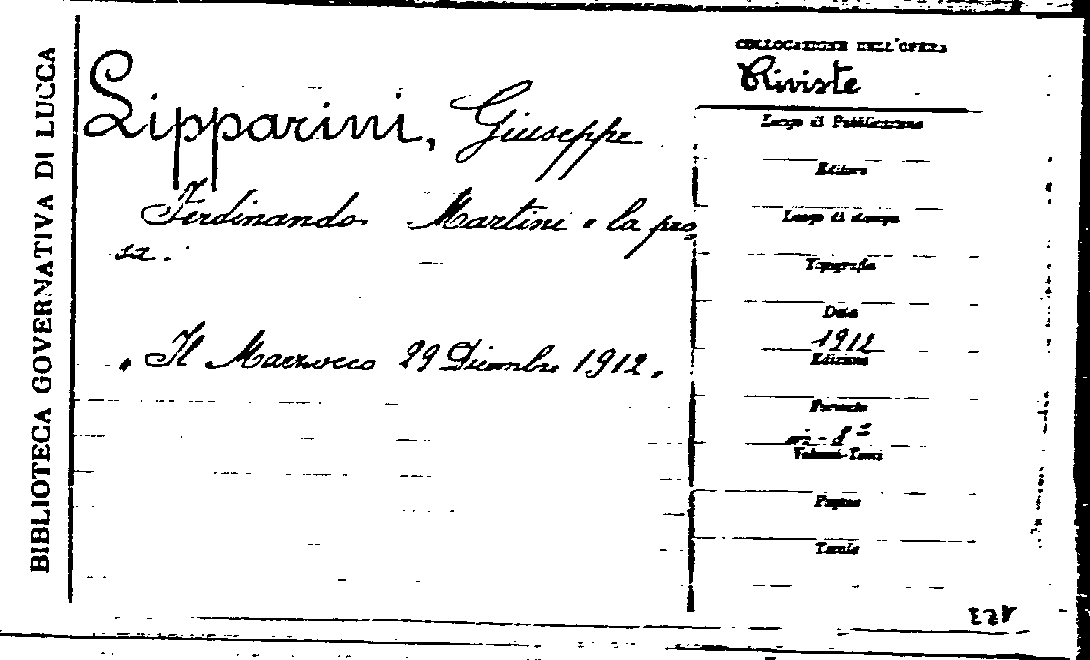 BIBLIOTECA GOVERNATIVA DI LUCCA
Lipparini, Giuseppe
Ferdinando Martini e la pro-
sa.
"Il Marzocco 29 Dicembre 1912."
COLLOCAZIONE DELL'OPERA
Riviste
Luogo di Pubblicazione
Editore
Luogo di stampa
Tipografia
Data
1912
Edizione
Formato
in-8°
Volumi-Tomi
Pagine
Tavole